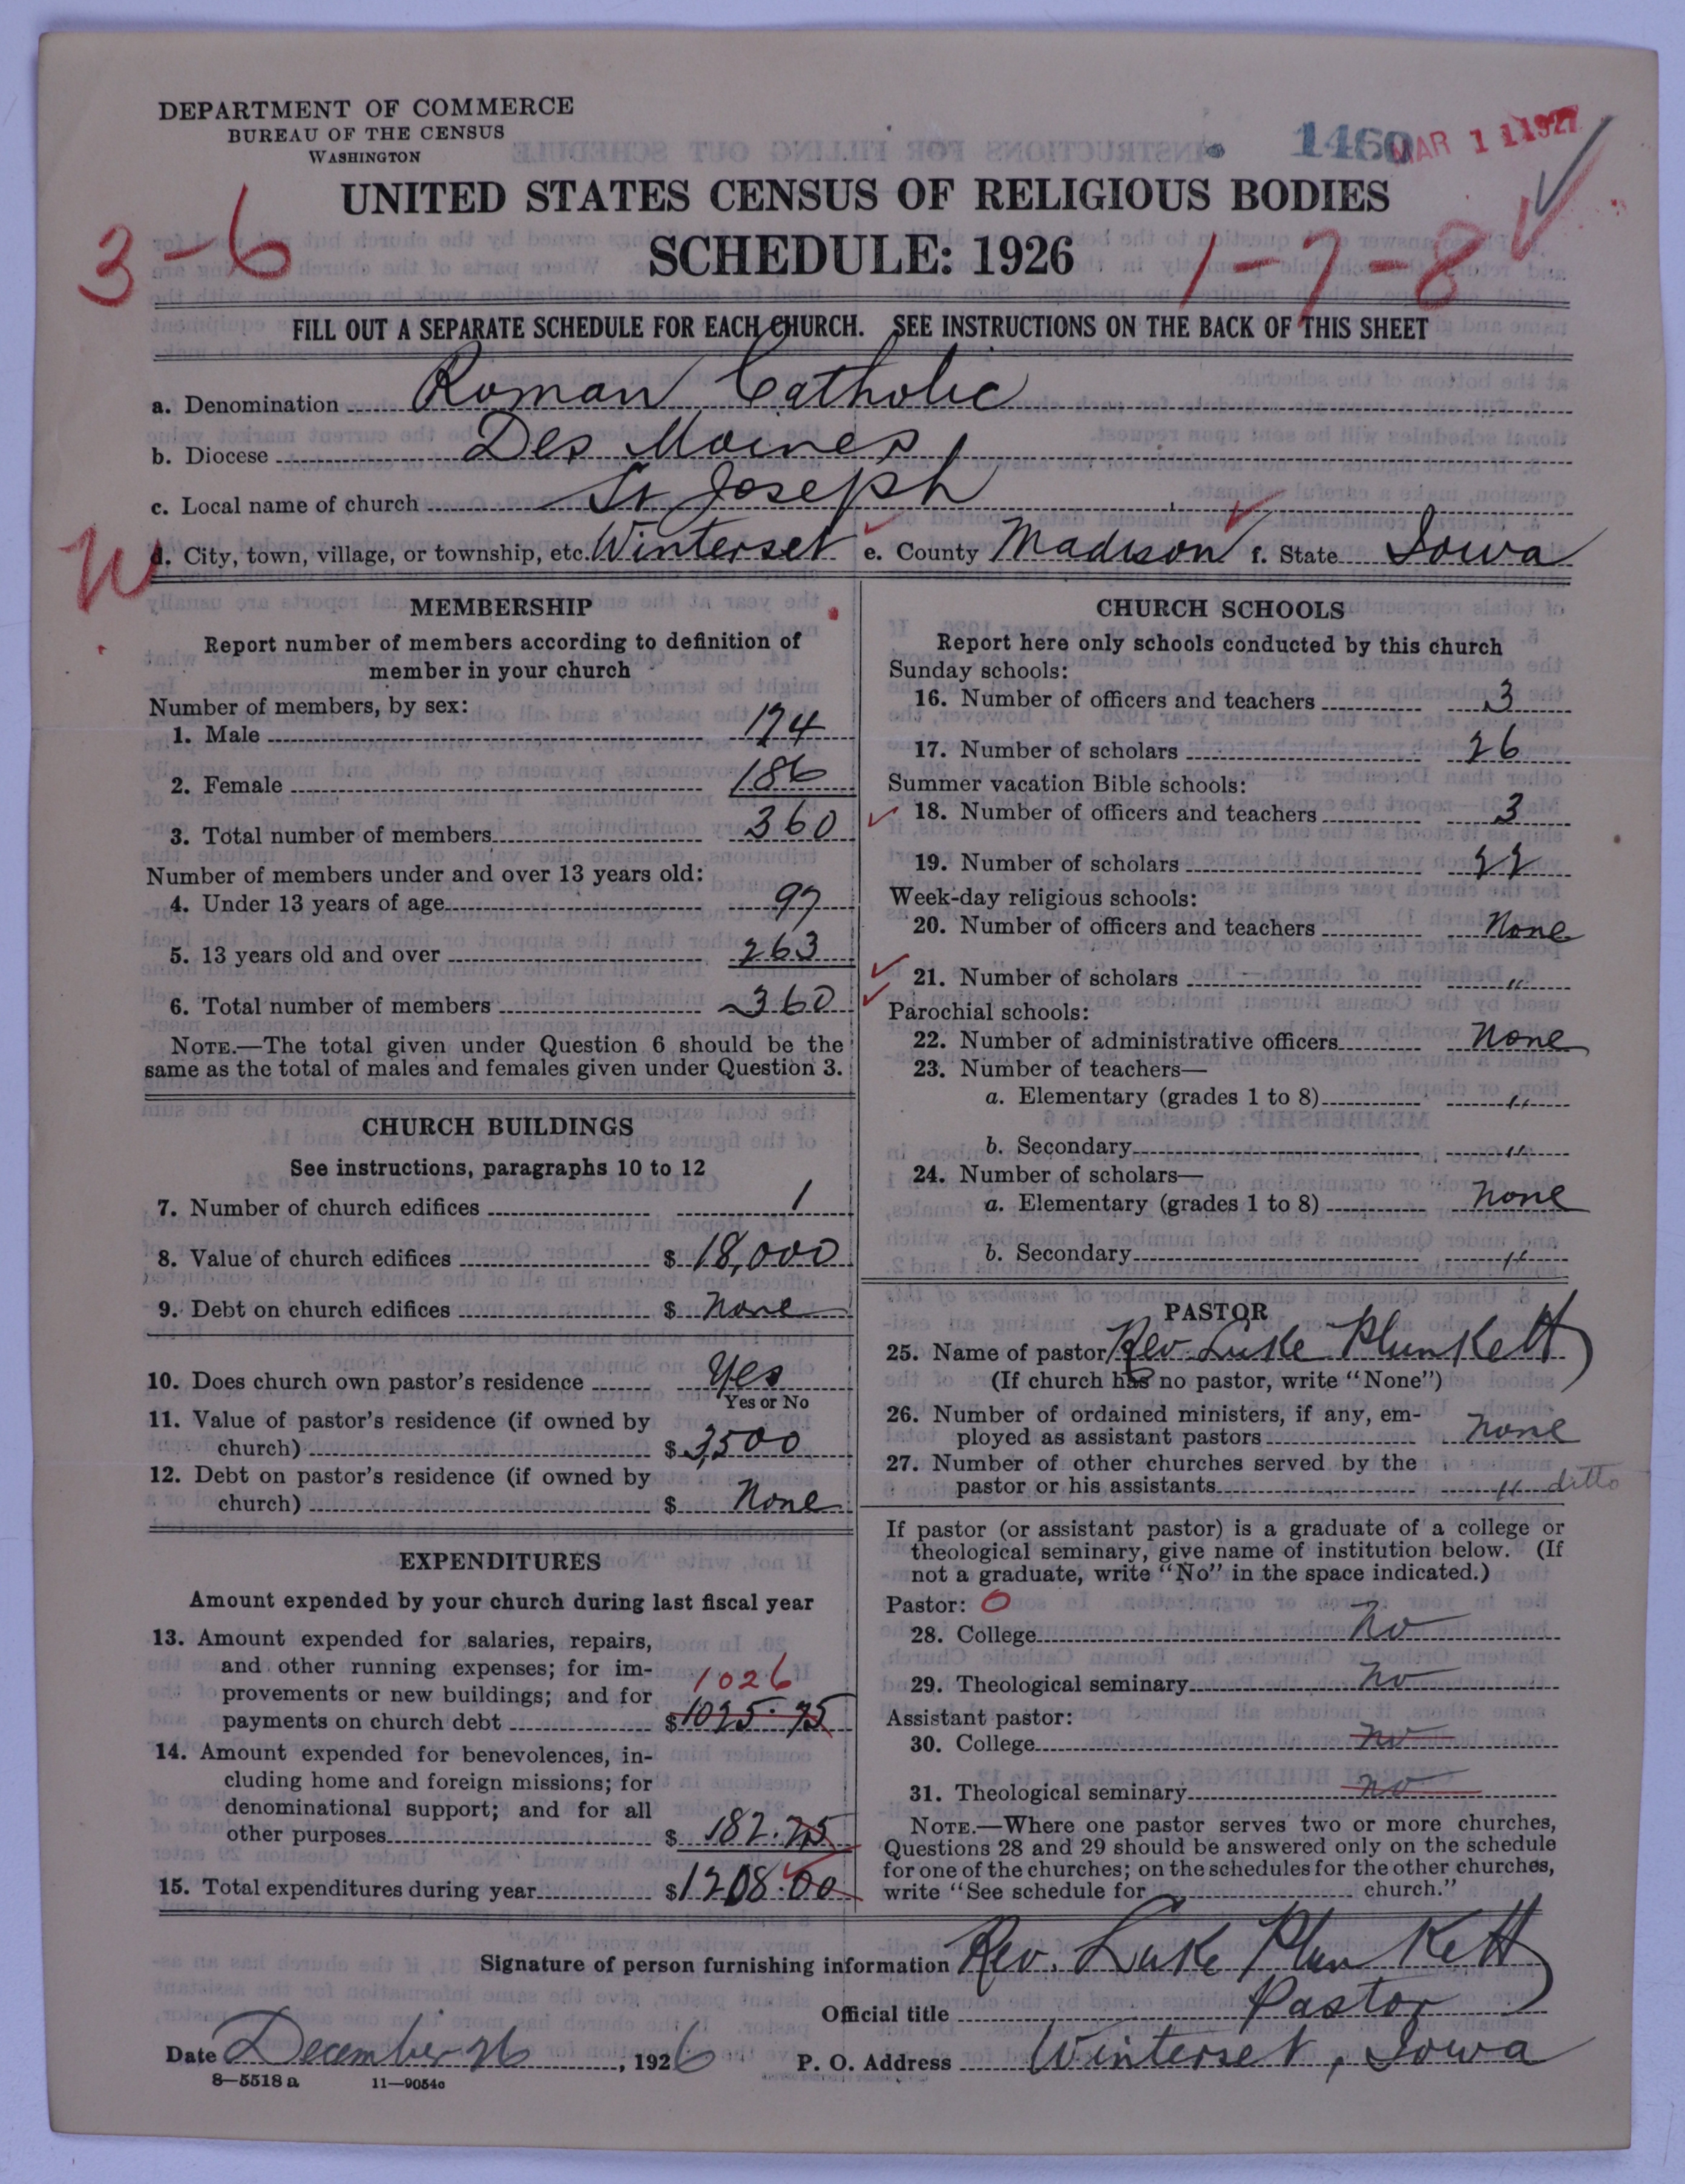 DEPARTMENT OF COMMERCE
BUREAU OF THE CENSUS
WASHINGTON
1460
MAR 11 1927
UNITED STATES CENSUS OF RELIGIOUS BODIES
SCHEDULE: 1926
3-6
1-7-8
FILL OUT A SEPARATE SCHEDULE FOR EACH CHURCH. SEE INSTRUCTIONS ON THE BACK OF THIS SHEET
a. Denomination Roman Catholic
b. Diocese Des Moines
c. Local name of church St Joseph
d. City, town, village, or township, etc. Winterset e. County Madison f. State Iowa
MEMBERSHIP
Report number of members according to definition of
member in your church
Number of members, by sex:
1. Male 174
2. Female 186
3. Total number of members 360
Number of members under and over 13 years old:
4. Under 13 years of age 97
5. 13 years old and over 263
6. Total number of members 360
NOTE.—The total given under Question 6 should be the
same as the total of males and females given under Question 3.
CHURCH BUILDINGS
See instructions, paragraphs 10 to 12
7. Number of church edifices 1
8. Value of church edifices $ 18,000
9. Debt on church edifices $ None
10. Does church own pastor's residence Yes
Yes or No
11. Value of pastor's residence (if owned by
church) $ 3,500
12. Debt on pastor's residence (if owned by
church) $ None
EXPENDITURES
Amount expended by your church during last fiscal year
13. Amount expended for salaries, repairs,
and other running expenses; for im-
provements or new buildings; and for 1026
payments on church debt $ 1025.75
14. Amount expended for benevolences, in-
cluding home and foreign missions; for
denominational support; and for all
other purposes $ 182.25
15. Total expenditures during year $ 1208.00
CHURCH SCHOOLS
Report here only schools conducted by this church
Sunday schools:
16. Number of officers and teachers 3
17. Number of scholars 26
Summer vacation Bible schools:
18. Number of officers and teachers 3
19. Number of scholars 22
Week-day religious schools:
20. Number of officers and teachers None
21. Number of scholars "
Parochial schools:
22. Number of administrative officers None
23. Number of teachers—
a. Elementary (grades 1 to 8) "
b. Secondary "
24. Number of scholars—
a. Elementary (grades 1 to 8) None
b. Secondary "
PASTOR
25. Name of pastor Rev. Luke Plunkett
(If church has no pastor, write "None")
26. Number of ordained ministers, if any, em-
ployed as assistant pastors None
27. Number of other churches served by the
pastor or his assistants " ditto
If pastor (or assistant pastor) is a graduate of a college or
theological seminary, give name of institution below. (If
not a graduate, write "No" in the space indicated.)
Pastor: O
28. College No
29. Theological seminary No
Assistant pastor:
30. College No
31. Theological seminary No
NOTE.—Where one pastor serves two or more churches,
Questions 28 and 29 should be answered only on the schedule
for one of the churches; on the schedules for the other churches,
write "See schedule for church."
Signature of person furnishing information Rev. Luke Plunkett
Official title Pastor
Date December 26, 1926 P. O. Address Winterset, Iowa
8—5518 a 11—9054c